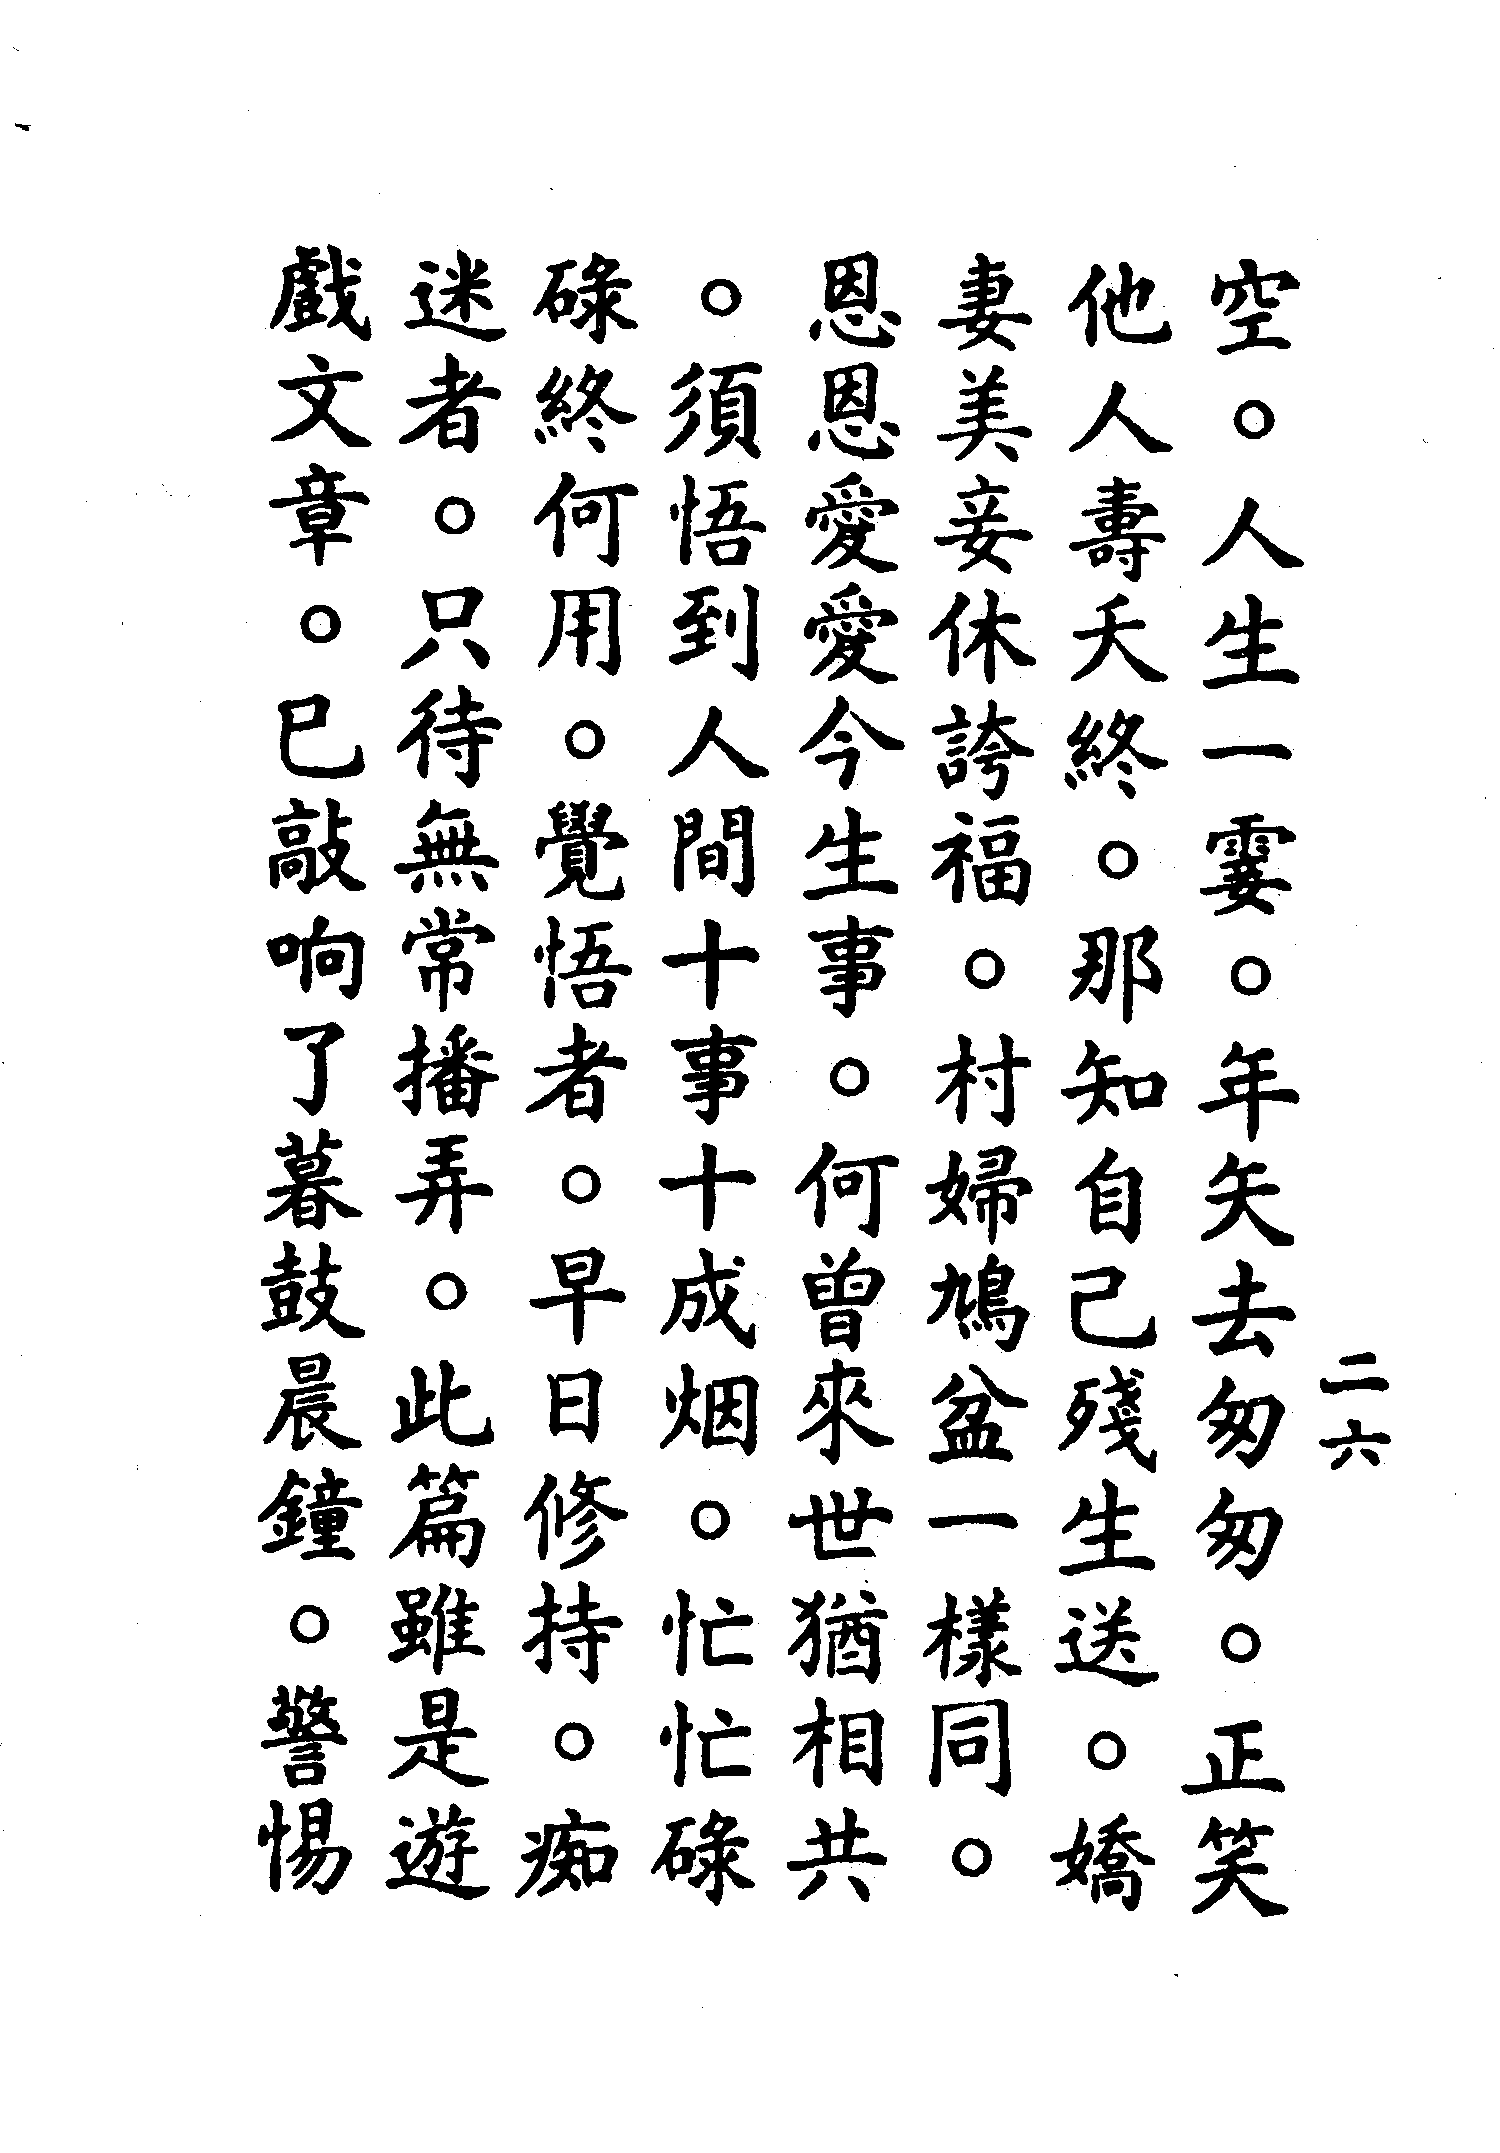 二六
空。人生一霎。年矢去匆匆。正笑
他人壽夭終。那知自己殘生送。嬌
妻美妾休誇福。村婦鳩盆一樣同。
恩恩愛愛今生事。何曾來世猶相共
。須悟到人間十事十成烟。忙忙碌
碌終何用。覺悟者。早日修持。痴
迷者。只待無常播弄。此篇雖是遊
戲文章。已敲响了暮鼓晨鐘。警惕